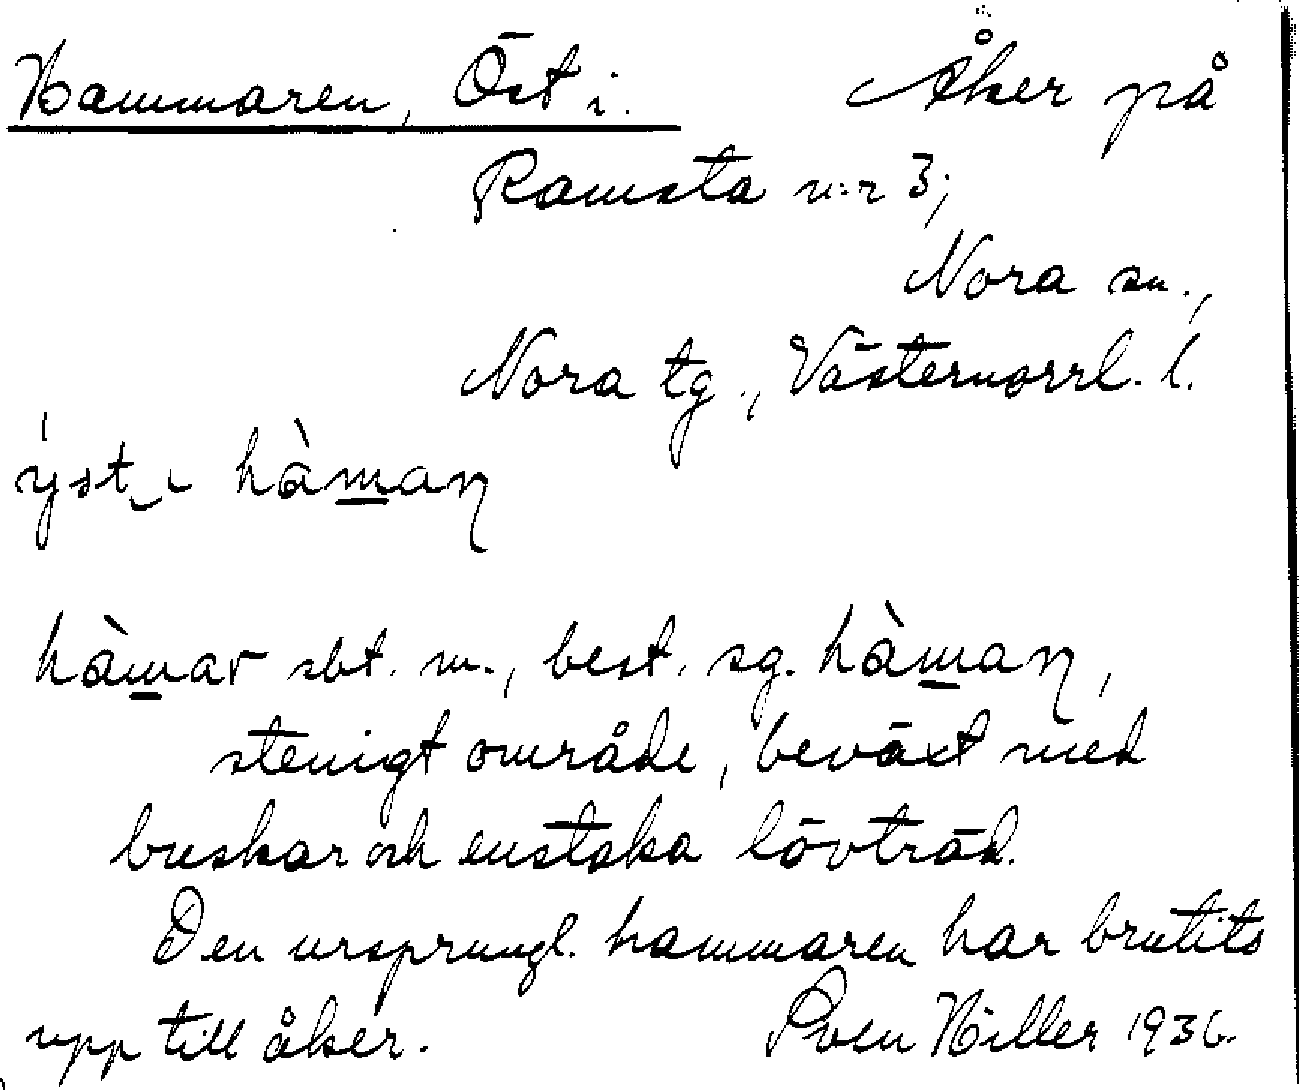 Hammaren, Öst i. Åker på
Ramsta n:r 3;
Nora sn.,
Nora tg., Västernorrl. l.
ýst ͜ ɩ hàm̲aɳ
hàm̲ar sbt. m., best. sg. hàm̲aɳ,
stenigt område, beväxt med
buskar och enstaka lövträd.
Den ursprungl. hammaren har brutits
upp till åker. Sven Hiller 1936.